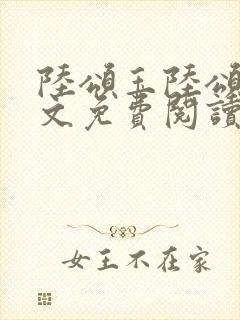 陸頌玉陸頌
文免費閱讀
女王不在家